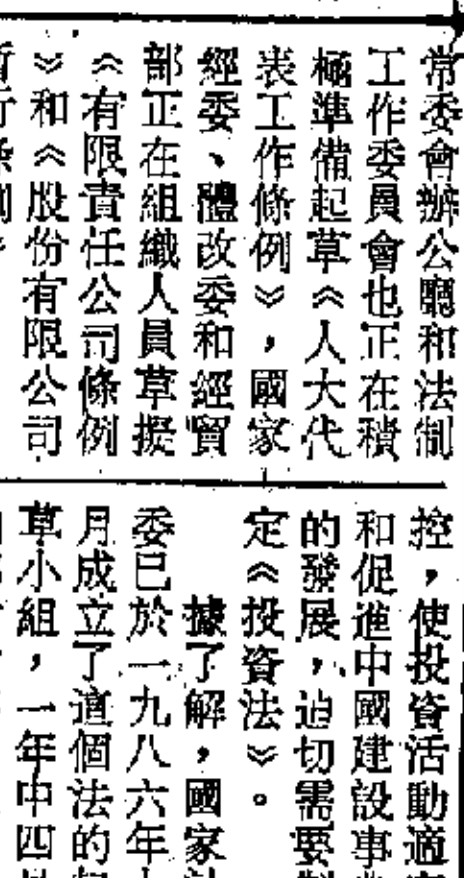 常委會辦公廳和法制
工作委員會也正在積
極準備起草《人大代
表工作條例》，國家
經委、體改委和經貿
部正在組織人員草擬
《有限責任公司條例
》和《股份有限公司
暫行條例》
控，使投資活動適
和促進中國建設事
的發展，迫切需要
定《投資法》。
據了解，國家
委已於一九八六年
月成立了這個法的
草小組，一年中四